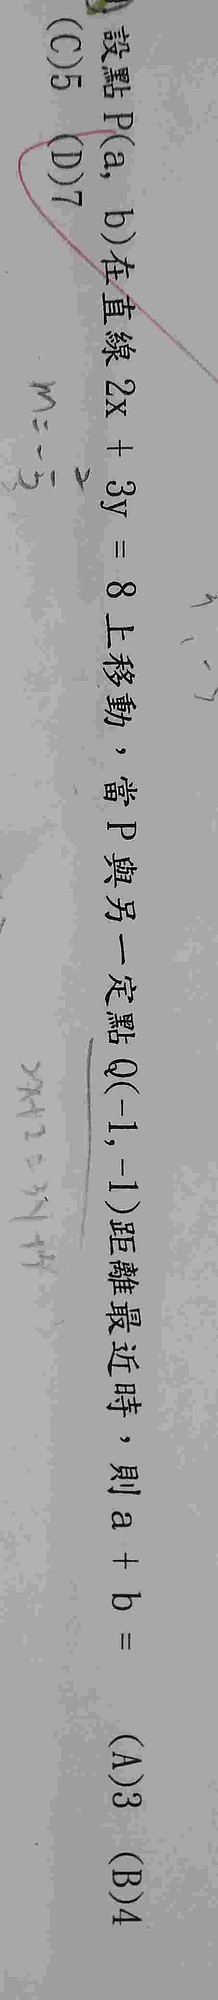 設點 P(a, b)在直線 2x + 3y = 8 上移動，當 P 與另一定點 Q(-1, -1)距離最近時，則 a + b = (A)3 (B)4
(C)5 (D)7